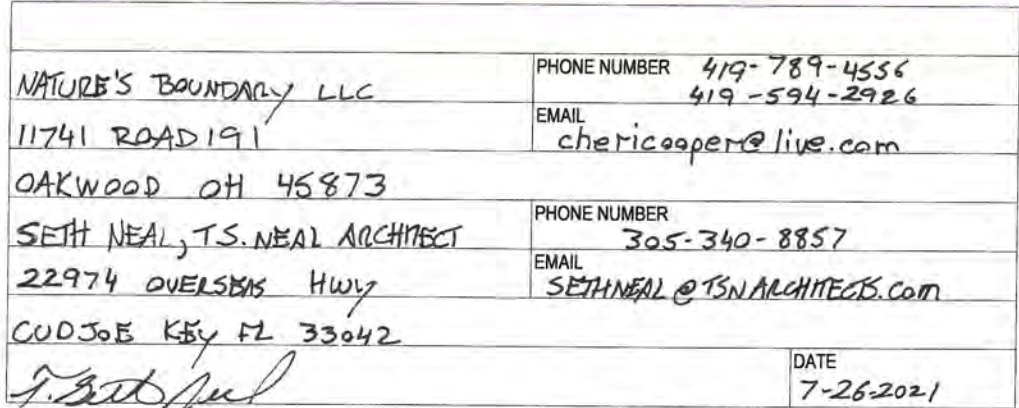 NATURE'S BOUNDARY LLC
PHONE NUMBER 419-789-4556
419-594-2926
11741 ROAD 191
EMAIL
chericooper@live.com
OAKWOOD OH 45873
SETH NEAL, T.S. NEAL ARCHITECT
PHONE NUMBER
305-340-8857
22974 OVERSEAS HWY
EMAIL
SETHNEAL@TSNARCHITECTS.COM
CUDJOE KEY FL 33042
T. Seth Neal
DATE
7-26-2021